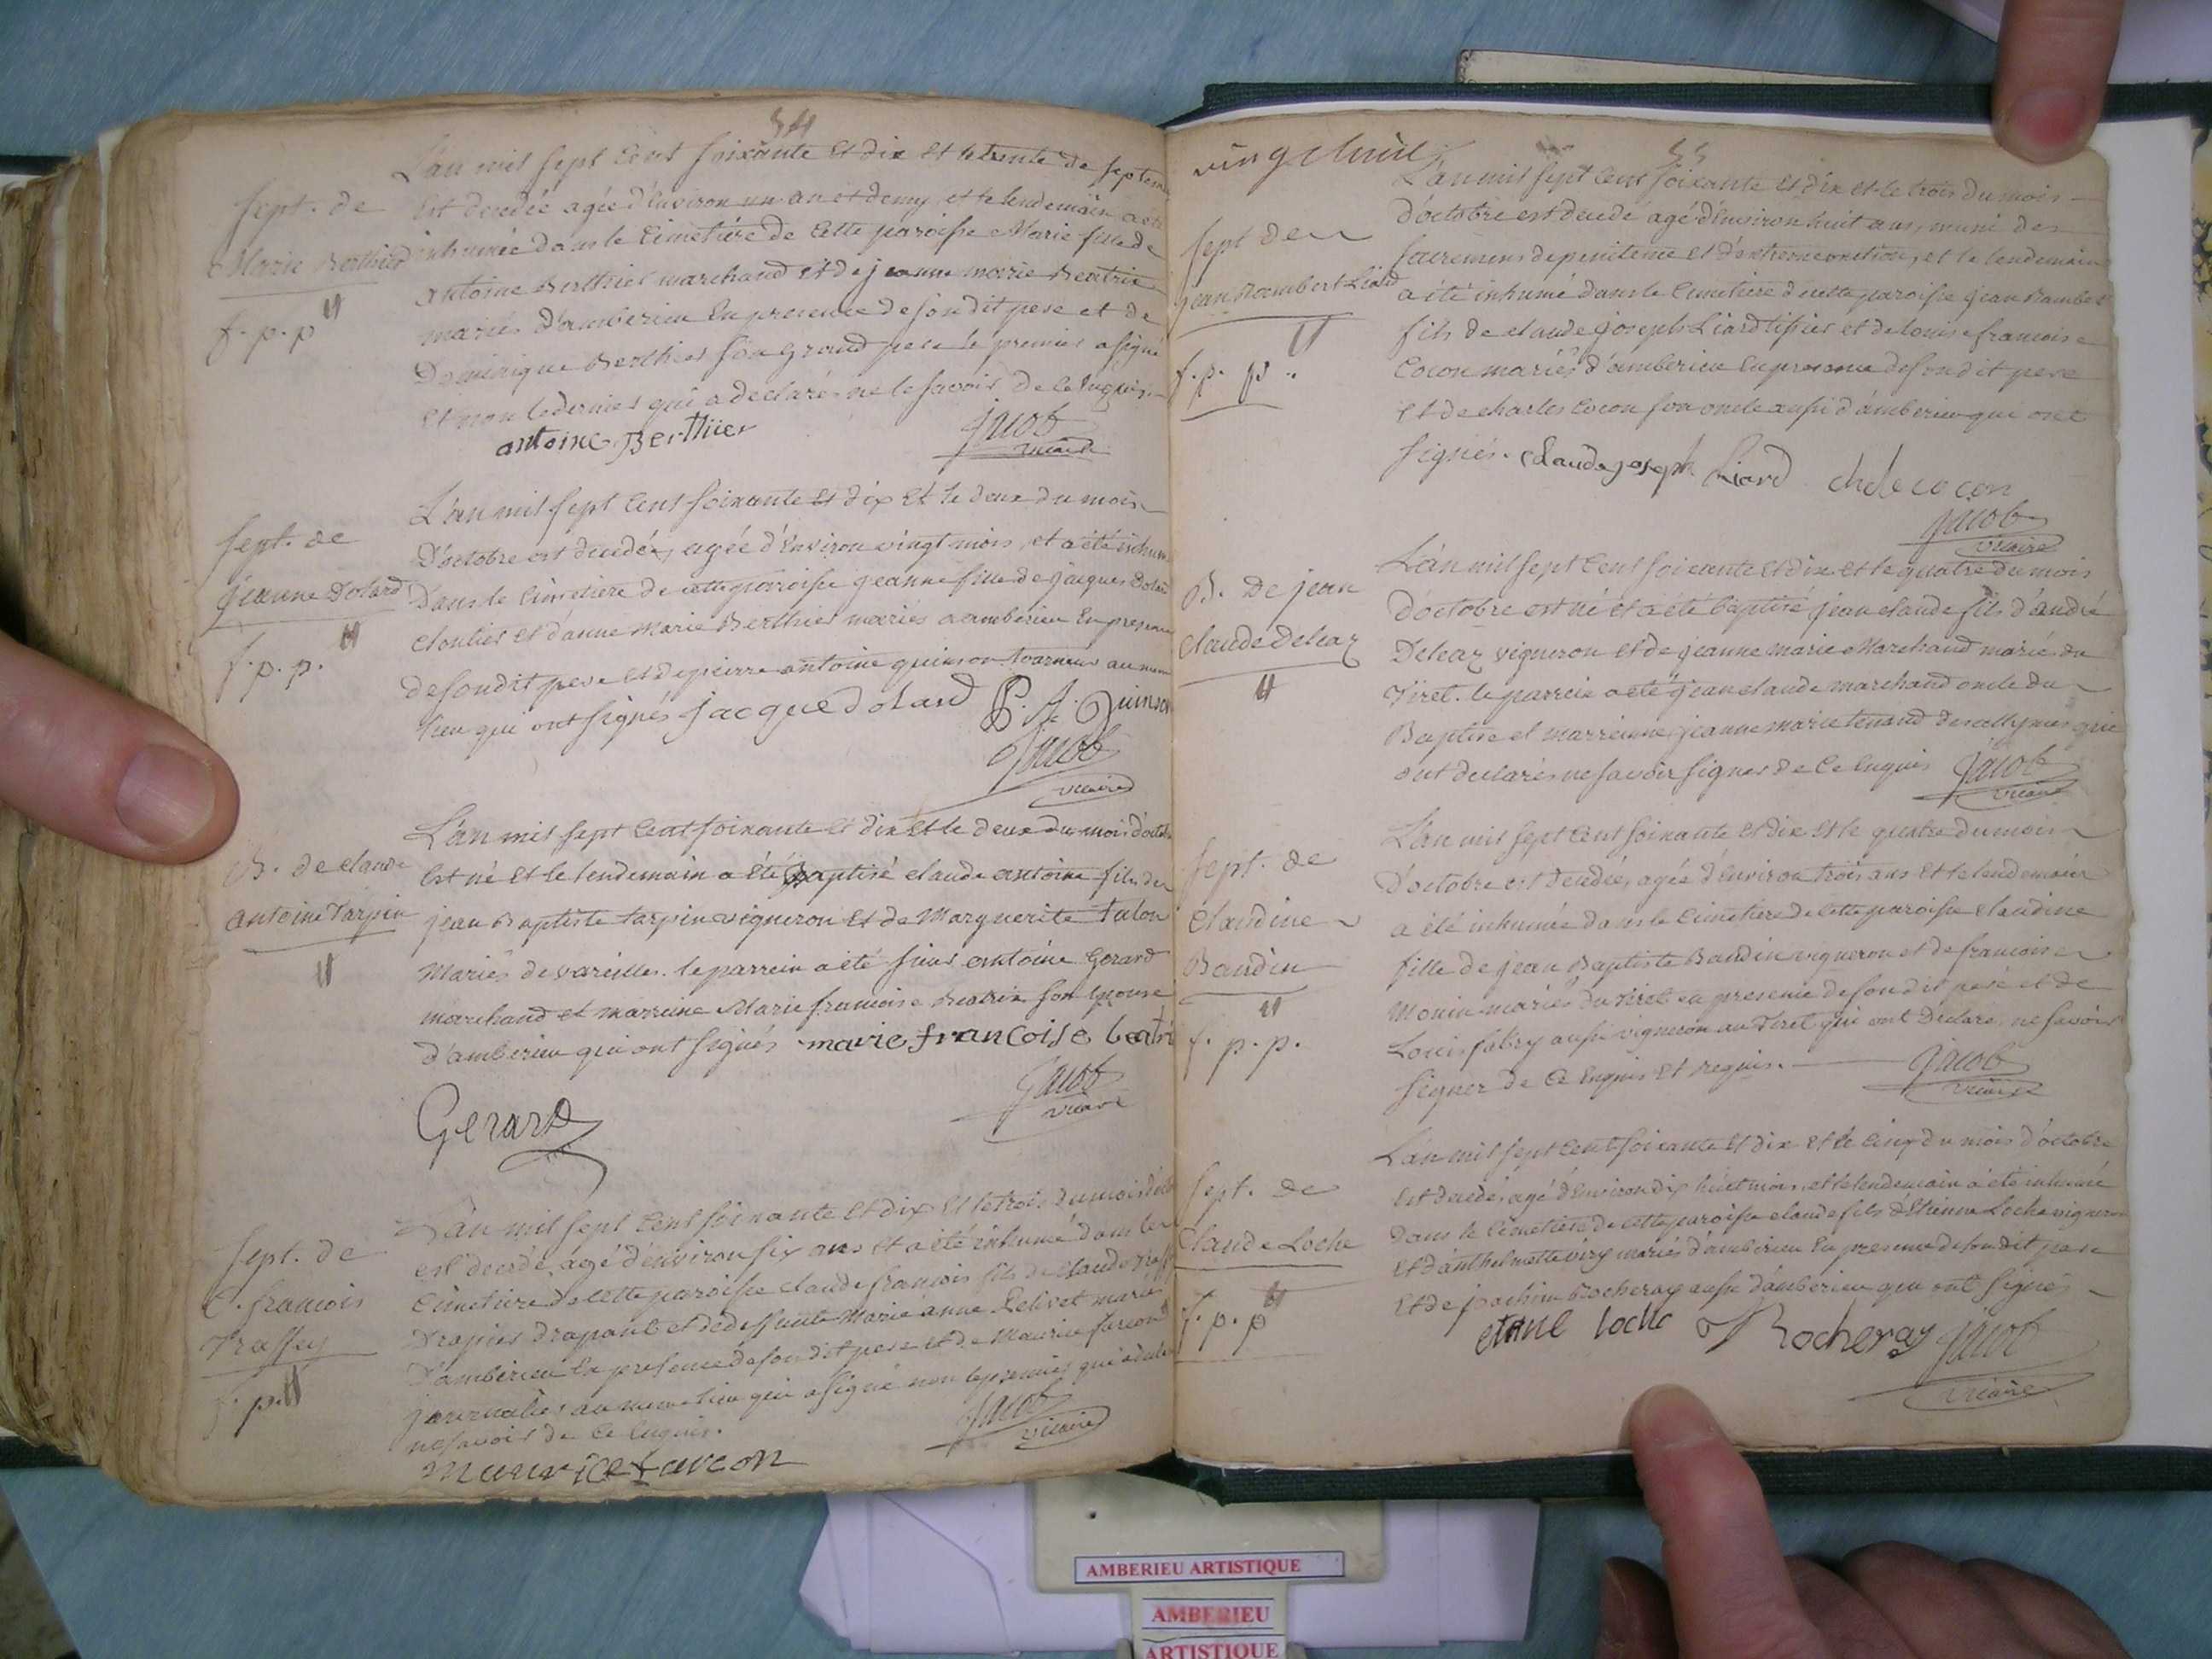 54
L'an mil sept cent soixante et dix et le trente de septem
est decedée agée d'environ un an et demy et le lendemain a été
inhumée dans le cimetière de cette paroisse Marie fille de
antoine Berthier marchand et de jeanne marie Beatrix
mariés d'amberieu en presence de son dit pere et de
Dominique Berthier son grand pere le premier a signé
et non le dernier qui a declaré ne le savoir de ce enquis.
antoine Berthier
jacob
vicaire
sept. de
Marie Berthier
f. p. p
L'an mil sept cent soixante et dix et le deux du mois
D'octobre est decedée, agée d'environ vingt mois, et a été inhum
Dans le cimetiere de cette paroisse jeanne fille de jacques Dolard
cloutier et d'anne Marie Berthier mariés a amberieu en presence
de son dit pere et de pierre antoine quinson tourneur au meme
lieu qui ont signés jacque dolard P. A. Quinson
jacob
vicaire
sept. de
jeanne Dolard
f. p. p.
L'an mil sept cent soixante et dix et le deux du mois d'octob
est né et le lendemain a été Baptisé claude antoine fils de
jean Baptiste tarpin vigneron et de Marguerite talon
Mariés de vareilles. le parrein a été sieur antoine Gerard
marchand et marreine Marie francoise Beatrix son epouse
d'amberieu qui ont signés marie francoise beatri
jacob
vicaire
Gerard
B. de claude
antoine Tarpin
L'an mil sept cent soixante et dix et le trois du mois d'oct
est decedé, agé d'environ six ans et a été inhumé dans le
cimetiere de cette paroisse claude francois fils de claude
Drapier drapant et de defunte Marie anne mariés
D'amberieu en presence de son dit pere et de Maurice farcon
journalier au meme lieu qui a signé non le premier qui a declaré
ne savoir de ce enquis.
jacob
vicaire
maurice farcon
sept. de
C. francois
Traffey
f. p.
vingt huit
55
L'an mil sept cent soixante et dix et le trois du mois
d'octobre est decedé agé d'environ huit ans, muni des
sacremens de penitence et d'extreme onction, et le lendemain
a été inhumé dans le cimetiere de cette paroisse jean Rambert
fils de claude joseph Liard tissier et de louise francoise
Cocon mariés d'amberieu en presence de son dit pere
et de charles cocon son oncle aussi d'amberieu qui ont
signés. claude joseph Liard chale cocon
jacob
vicaire
sept de
jean Rambert Liard
f. p. p.
L'an mil sept cent soixante et dix et le quatre du mois
d'octobre est né et a été baptisé jean claude fils d'andré
Deleaz vigneron et de jeanne marie Marchand mariés du
Tiret. le parrein a été jean claude marchand oncle du
Baptisé et marreine jeanne marie tenand de qui
ont declarés ne savoir signer de ce enquis jacob
vicaire
B. de jean
claude Deleaz
L'an mil sept cent soixante et dix et le quatre du mois
D'octobre est decedée, agée d'environ trois ans et le lendemain
a été inhumée dans le cimetiere de cette paroisse claudine
fille de jean Baptiste Baudin vigneron et de francoise
Monin mariés du Tiret en presence de son dit pere et de
Louis fabry aussi vigneron au Tiret qui ont declaré ne savoir
signer de ce enquis et requis.
jacob
vicaire
sept. de
Claudine
Baudin
f. p. p.
L'an mil sept cent soixante et dix et le cinq du mois d'octobre
est decedé, agé d'environ dix huit mois, et le lendemain a été inhumé
dans le cimetiere de cette paroisse claude fils d'Etienne Loche vigneron
et d'anthelmette viry mariés d'amberieu en presence de son dit pere
et de joachim Rocheray aussi d'amberieu qui ont signés
etiene loche Rocheray jacob
vicaire
sept. de
Claude Loche
f. p. p
AMBERIEU ARTISTIQUE
AMBERIEU
ARTISTIQUE